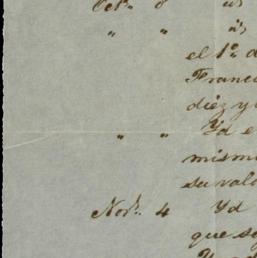 Oct.e 8
" "
el 1º d
Franc
diez y
" " Yd e
mism
su valo
Nov.e 4 Yd
que se